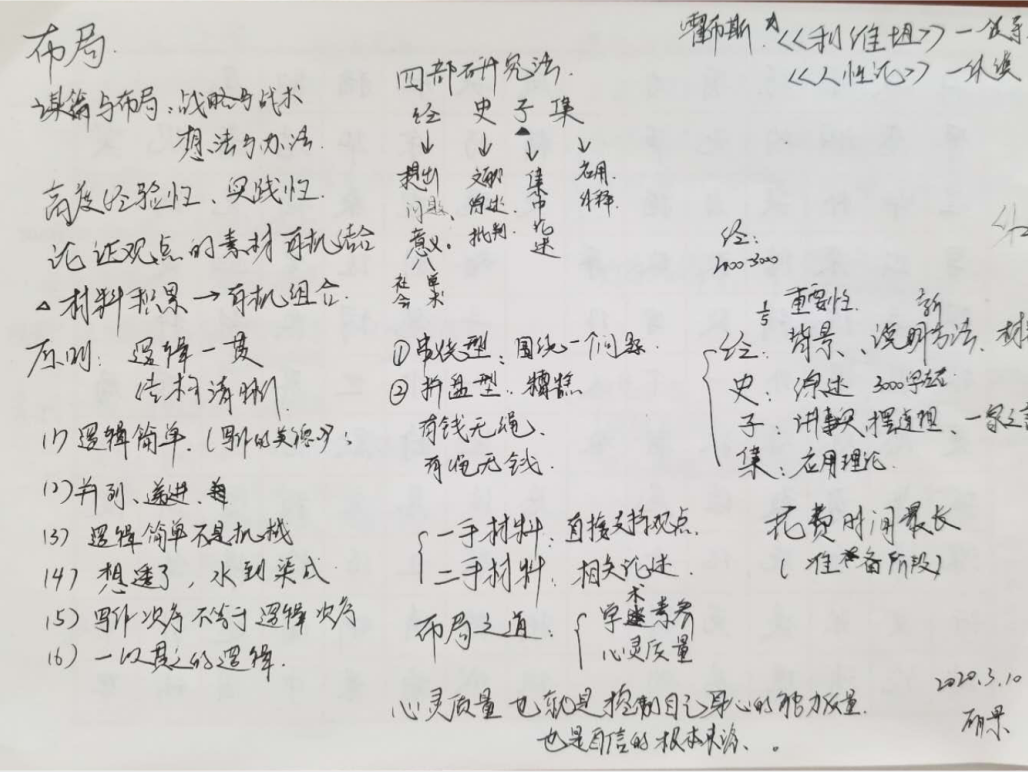 布局.
谋篇与布局、战略与战术
想法与办法.
高度经验性、实践性.
论证观点的素材有机结合
△材料积累→有机组合.
原则: 逻辑一贯
结构清晰.
(1) 逻辑简单.(写作的美德):
(2) 并列、递进、
(3) 逻辑简单不是机械
(4) 想透了,水到渠成
(5) 写作次序不等于逻辑次序
(6) 一以贯之的逻辑.
四部研究法.
经 史 子 集
↓ ↓ ↓ ↓
提出问题.意义。
社会 学术
文献综述.批判.
集中论述
应用.
①串线型: 围绕一个问题.
②拼盘型. 糟糕
有钱无绳、
有绳无钱.
一手材料: 直接支持观点.
二手材料: 相关论述.
布局之道: 学术素养
心灵质量
心灵质量也就是控制自己身心的能力及质量.
也是自信的根本来源。
霍布斯.
《利维坦》一
《人性论》一休谟
经:
2000-3000
重要性. 新
经: 背景、说明方法、材
史: 综述 3000字左右
子: 讲事实、摆道理、一家之言
集: 应用理论.
花费时间最长
(准备阶段)
2020.3.10